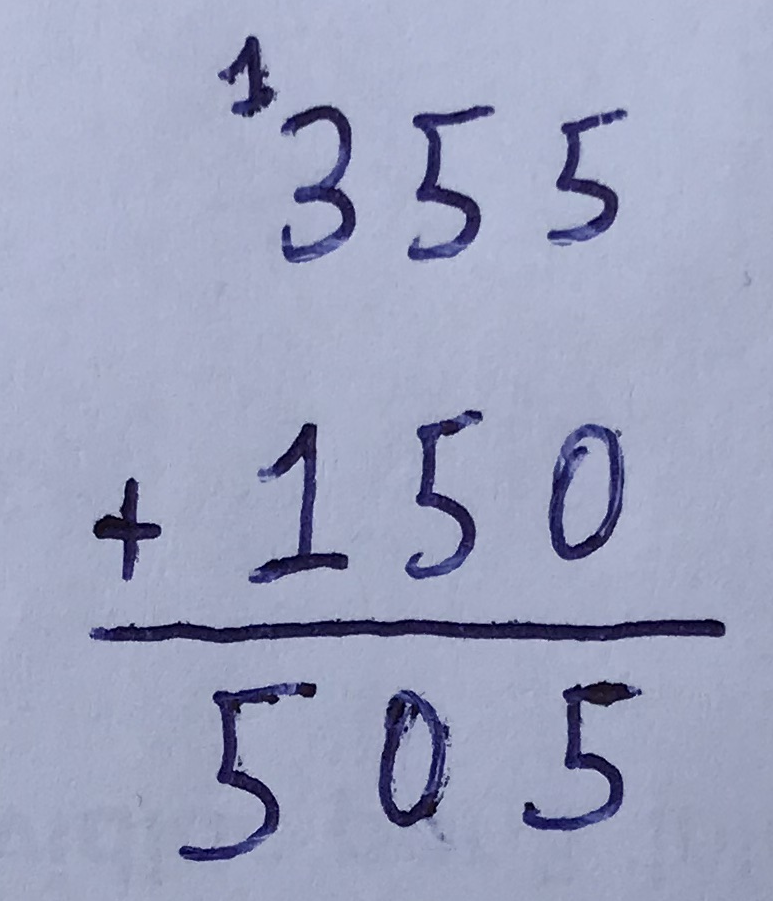 1
355
+ 150
505